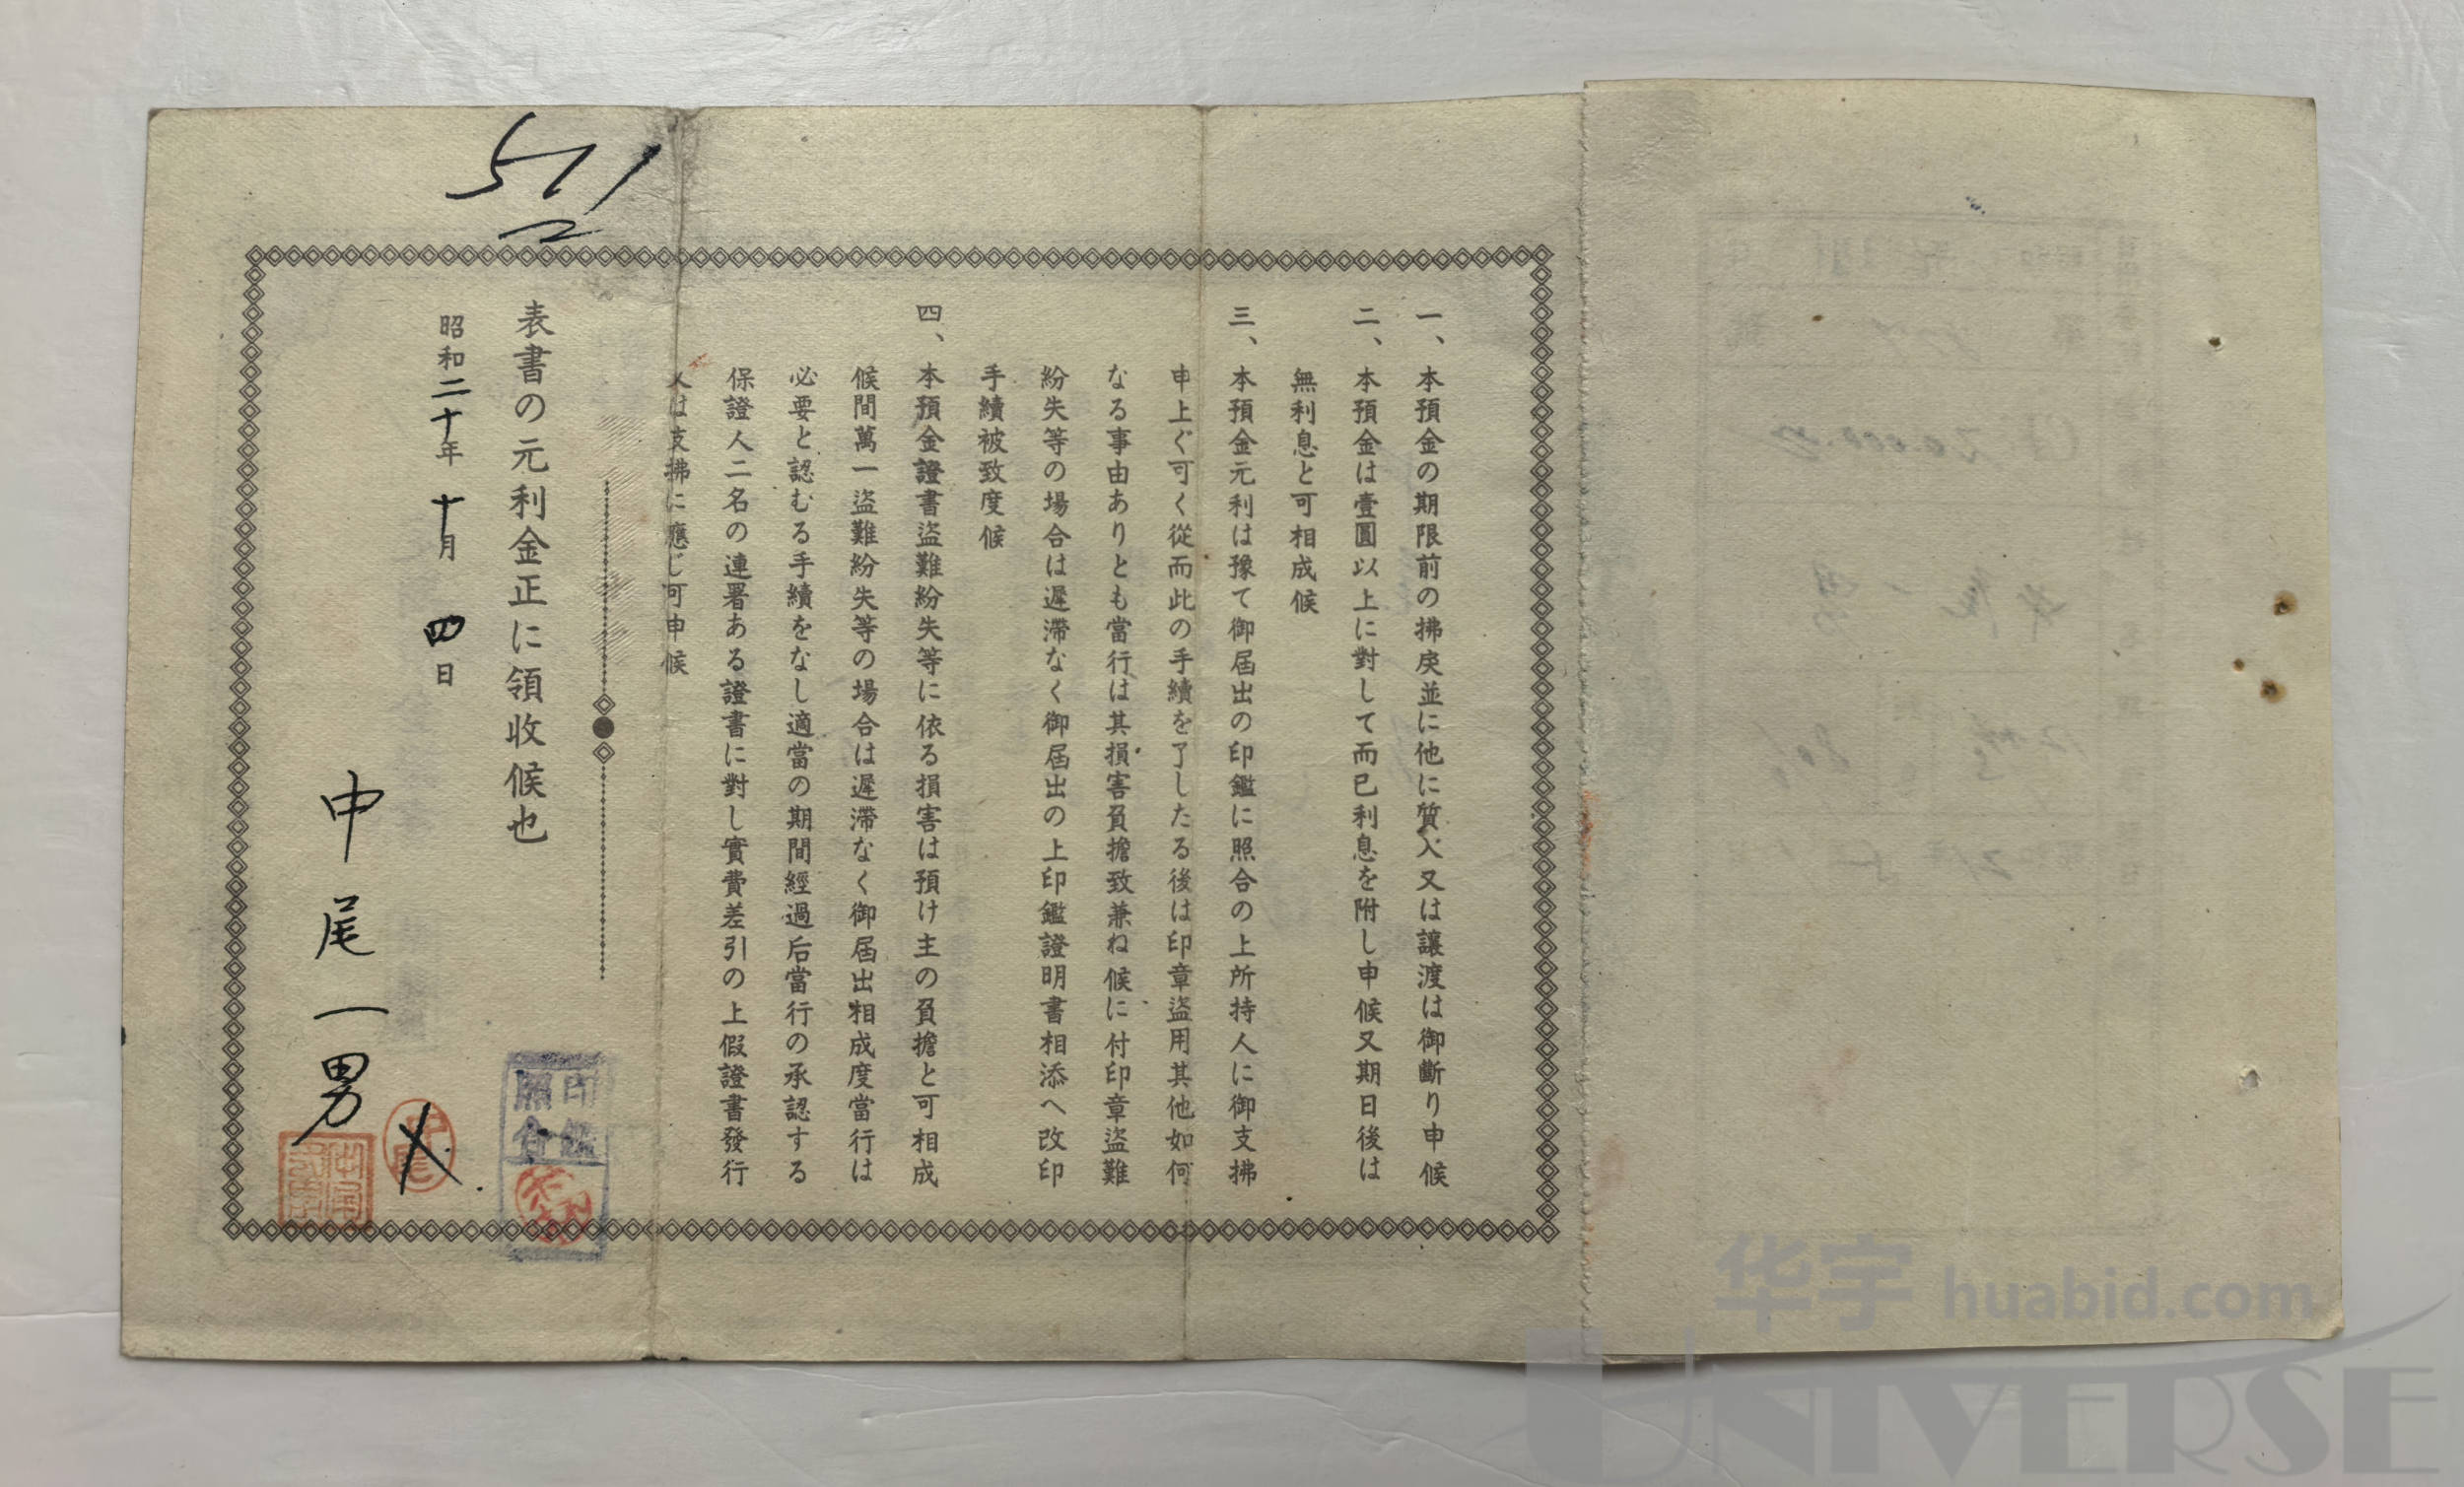 一、本預金の期限前の拂戾並に他に質入又は讓渡は御斷り申候
二、本預金は壹圓以上に對して而已利息を附し申候又期日後は
無利息と可相成候
三、本預金元利は豫て御屆出の印鑑に照合の上所持人に御支拂
申上ぐ可く從而此の手續を了したる後は印章盜用其他如何
なる事由ありとも當行は其損害負擔致兼ね候に付印章盜難
紛失等の場合は遲滯なく御屆出の上印鑑證明書相添へ改印
手續被致度候
四、本預金證書盜難紛失等に依る損害は預け主の負擔と可相成
候間萬一盜難紛失等の場合は遲滯なく御屆出相成度當行は
必要と認むる手續をなし適當の期間經過后當行の承認する
保證人二名の連署ある證書に對し實費差引の上假證書發行
又は支拂に應じ可申候
表書の元利金正に領收候也
昭和二十年 十月 四日
中尾一男
印鑑
照合
华宇 huabid.com
UNIVERSE